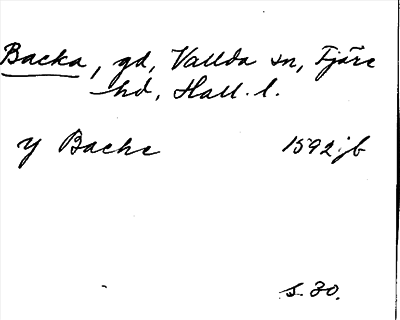 Backa, gd, Vallda sn, Fjäre
hd, Hall. l.
y Backe 1592 jb
s. 30.